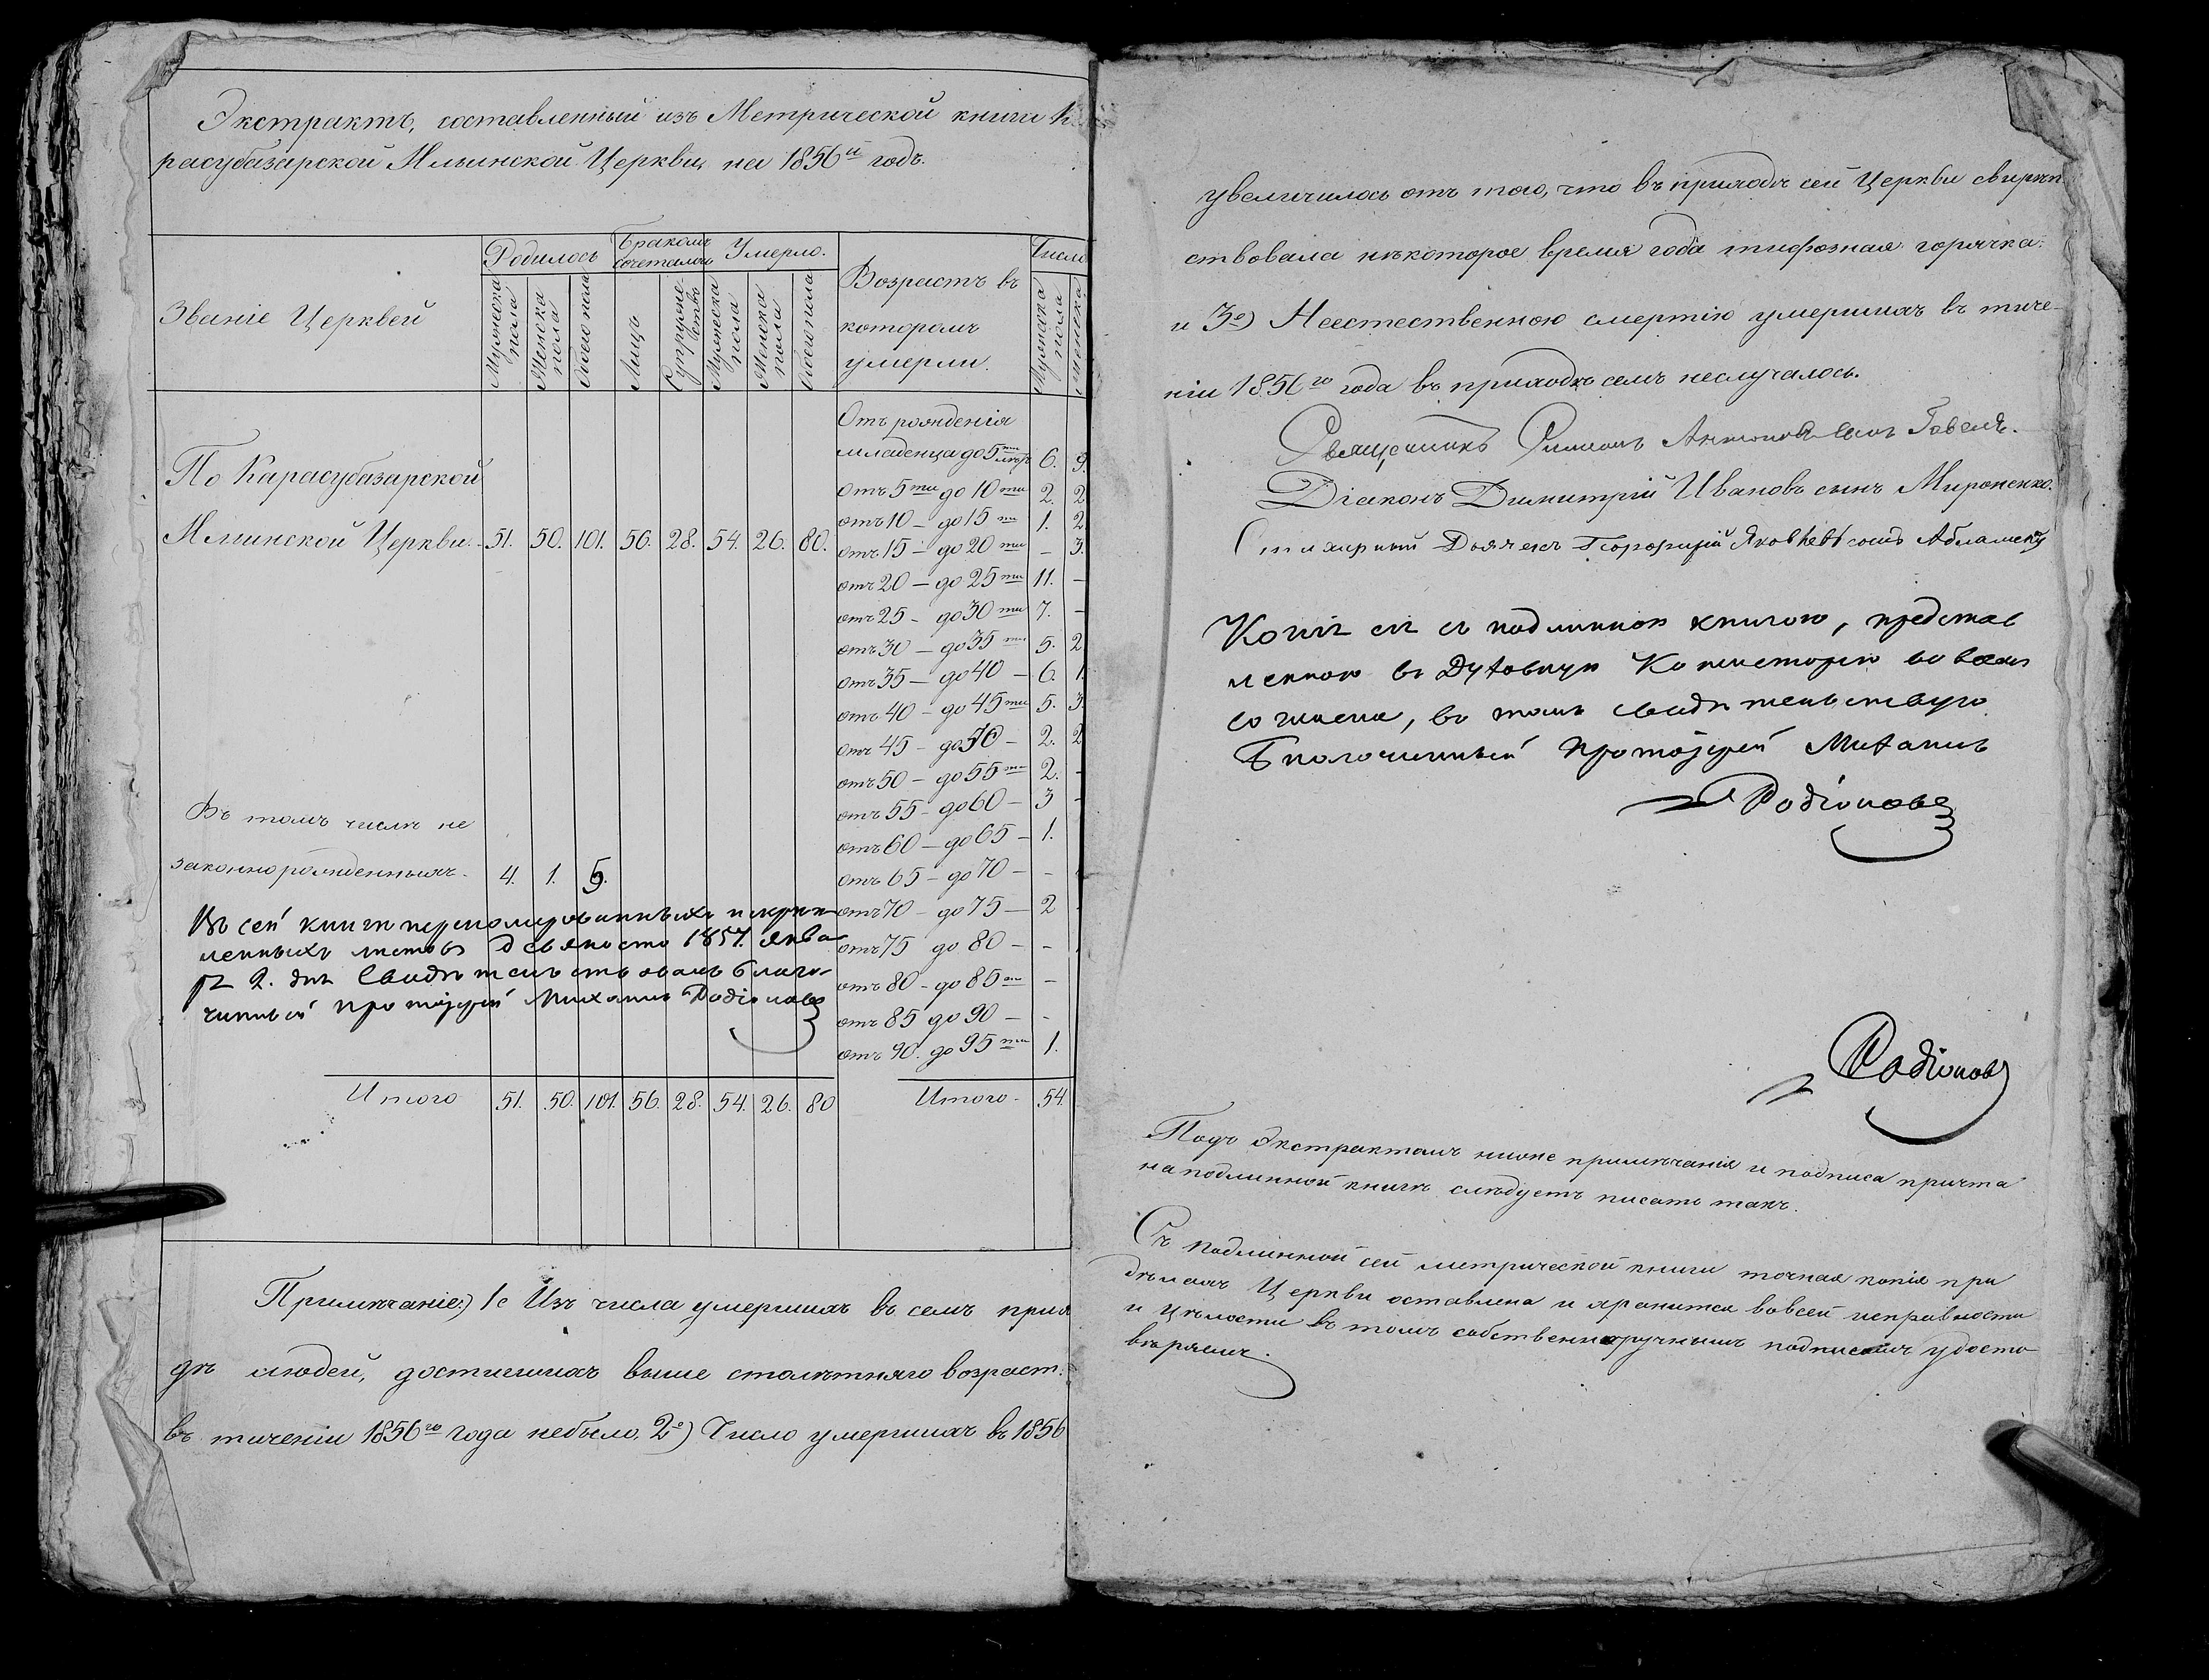 Экстрактъ, составленный изъ Метрической книги К
расубазарской Ильинской Церкви, на 1856й годъ.
Званіе Церквей
Родилось
Бракомъ сочеталось
Умерло.
Возрастъ въ
которомъ
умерли.
Число
Мужеска пола
Женска пола
Обоего пола
Лицъ
Супружествъ
Мужеска пола
Женска пола
Обоего пола
Мужеска пола
Женска
По Карасубазарской
Ильинской Церкви. 51. 50. 101. 56. 28. 54. 26. 80.
Отъ рожденія
младенца до 5ти лѣтъ 6. 9.
отъ 5ти до 10ти 2. 2
отъ 10 – до 15ти 1. 2
отъ 15 – до 20ти – 3.
отъ 20 – до 25ти 11. –
отъ 25 – до 30ти 7. –
отъ 30 – до 35ти 5. 2
отъ 35 – до 40 – 6. 1.
отъ 40 – до 45ти 5. 3.
отъ 45 – до 50 – 2. 2
отъ 50 – до 55ти 2. -
отъ 55 – до 60 – 3 -
отъ 60 – до 65 – 1.
отъ 65 – до 70 – -
отъ 70 – до 75 – 2
отъ 75 до 80 – -
отъ 80 – до 85ти –
отъ 85 до 90 – -
отъ 90. до 95ти 1.
Въ томъ числѣ не
законнорожденныхъ. 4. 1. 5.
Въ сей книгѣ перномерованныхъ и скрѣп
ленныхъ листовъ девяносто 1857. Янва
ря 2. дня Свидѣтельствовалъ благо-
чинный протоіерей Михаилъ Родіоновъ
Итого 51. 50. 101. 56. 28. 54. 26. 80
Итого - 54.
Примѣчаніе:) 1е Изъ числа умершихъ въ семъ прихо
дѣ людей, достигшихъ выше столѣтняго возраст.
въ теченіи 1856го года небыло, 2о) Число умершихъ въ 1856
увеличилось отъ того, что въ приходѣ сей Церкви свирѣп
ствовала нѣкоторое время года тифозная горячка.
и 3о) Неестественною смертію умершихъ въ тече-
ніи 1856го года въ приходѣ семъ неслучалось.
Священникъ Симеонъ Антоновъ сынъ
Діаконъ Димитрій Ивановъ сынъ Мироненко.
Стихарный Дьячекъ Порфирій Яковлевъ сынъ
Копія сія съ подлинною книгою, представ
ленною въ Духовную Консисторію во всемъ
согласна, въ томъ свидѣтельствую
Благочинный Протоіерей Михаилъ
Родіоновъ
Родіоновъ
Подъ экстрактомъ ниже примѣчанія и подписа причта
на подлинной книгѣ слѣдуетъ писать такъ.
Съ подлинной сей метрической книги точная копія при
дѣлахъ Церкви оставлена и хранится вовсей исправности
и цѣлости въ томъ собственноручнымъ подписомъ удосто
вѣряемъ.